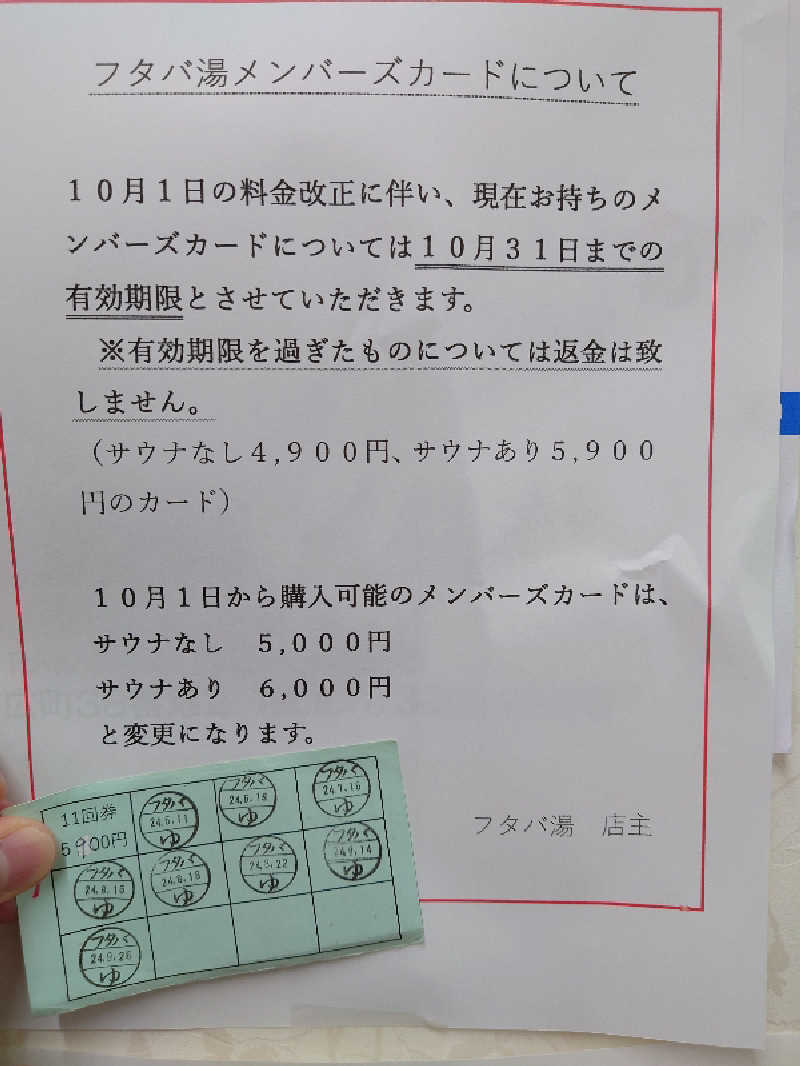 フタバ湯メンバーズカードについて
10月1日の料金改正に伴い、現在お持ちのメ
ンバーズカードについては10月31日までの
有効期限とさせていただきます。
※有効期限を過ぎたものについては返金は致
しません。
（サウナなし4,900円、サウナあり5,900
円のカード）
10月1日から購入可能のメンバーズカードは、
サウナなし 5,000円
サウナあり 6,000円
と変更になります。
フタバ湯 店主
11回券
5900円
フタバ
ゆ
フタバ
ゆ
フタバ
24.7.15
ゆ
フタバ
ゆ
フタバ
ゆ
フタバ
ゆ
フタバ
ゆ
フタバ
24.9.26
ゆ